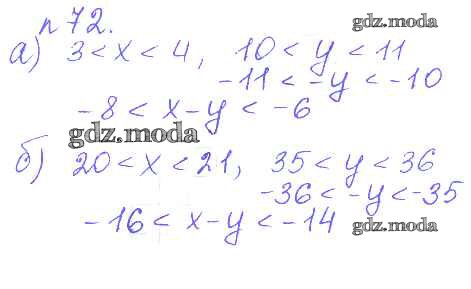 n 72.
gdz.moda
а) 3 < x < 4, 10 < y < 11
-11 < -y < -10
-8 < x-y < -6
gdz.moda
б) 20 < x < 21, 35 < y < 36
-36 < -y < -35
-16 < x-y < -14
gdz.moda